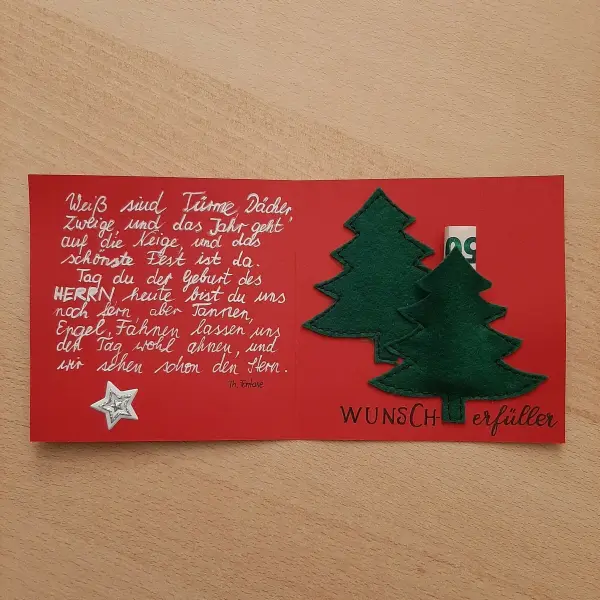 Weiß sind Türme, Dächer,
Zweige, und das Jahr geht
auf die Neige, und das
schönste Fest ist da.
Tag du der Geburt des
HERRN, heute bist du uns
noch fern, aber Tannen,
Engel, Fahnen lassen uns
den Tag wohl ahnen, und
wir sehen schon den Stern.
Th. Fontane
50
WUNSCH erfüller